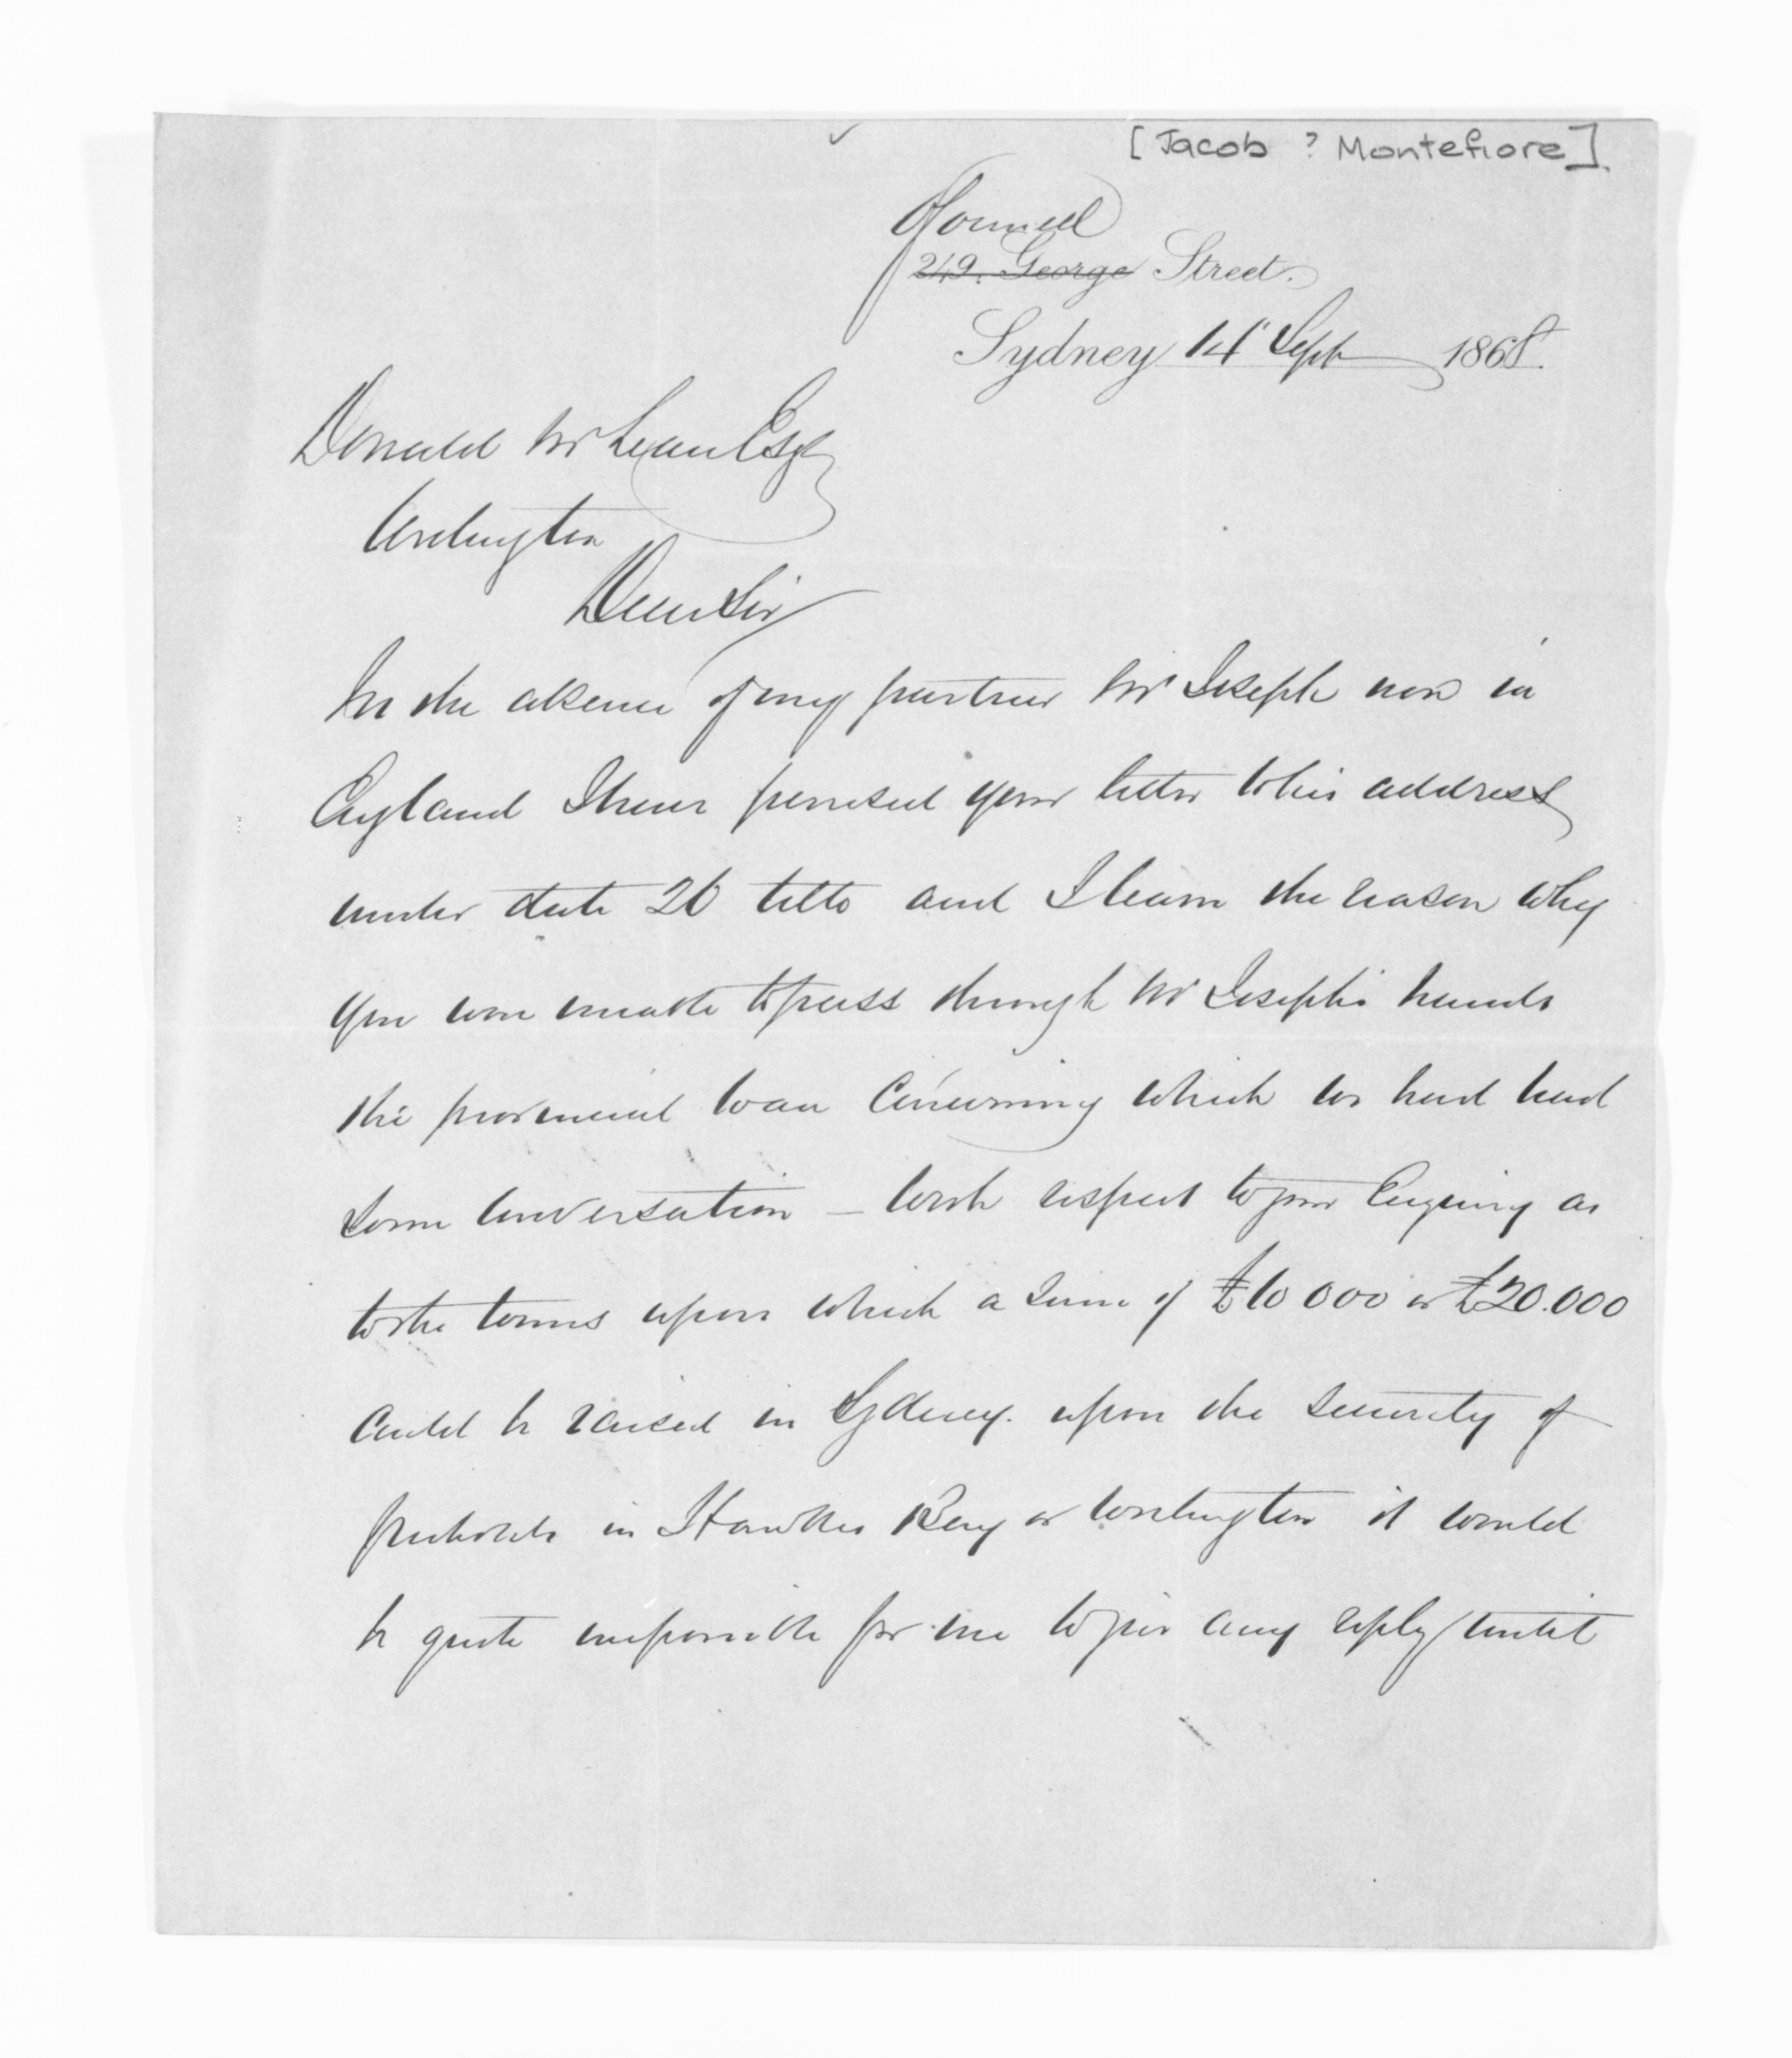 [Jacob ? Montefiore]
O'Connell
249. George Street.
Sydney 14 Sept 1868.
Donald McLean Esq
Wellington
Dear Sir
In the absence of my partner Mr Joseph now in
England I have perused your letter to his address
under date 26 Ulto and I learn the reason why
you were unable to pass through Mr Joseph's hands
the provincial loan concerning which we had had
some conversation – With respect to your Enquiry as
to the terms upon which a sum of £10 000 or £20.000
could be raised in Sydney upon the security of
freeholds in Hawkes Bay or Wellington it would
be quite impossible for me to give any reply until